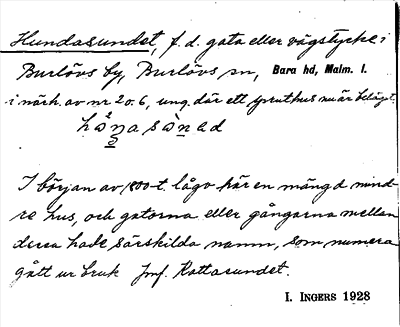 Hundasundet, f.d. gata eller vägstycke i
Burlövs by, Burlövs sn, Bara hd, Malm. l.
i närh. av nr 2 o. 6, ung. där ett spruthus nu är beläget.
I början av 1800-t. lågo här en mängd mind-
re hus, och gatorna eller gångarna mellan
dessa hade särskilda namn, som numera
gått ur bruk. Jmf. Kattasundet.
I. INGERS 1928